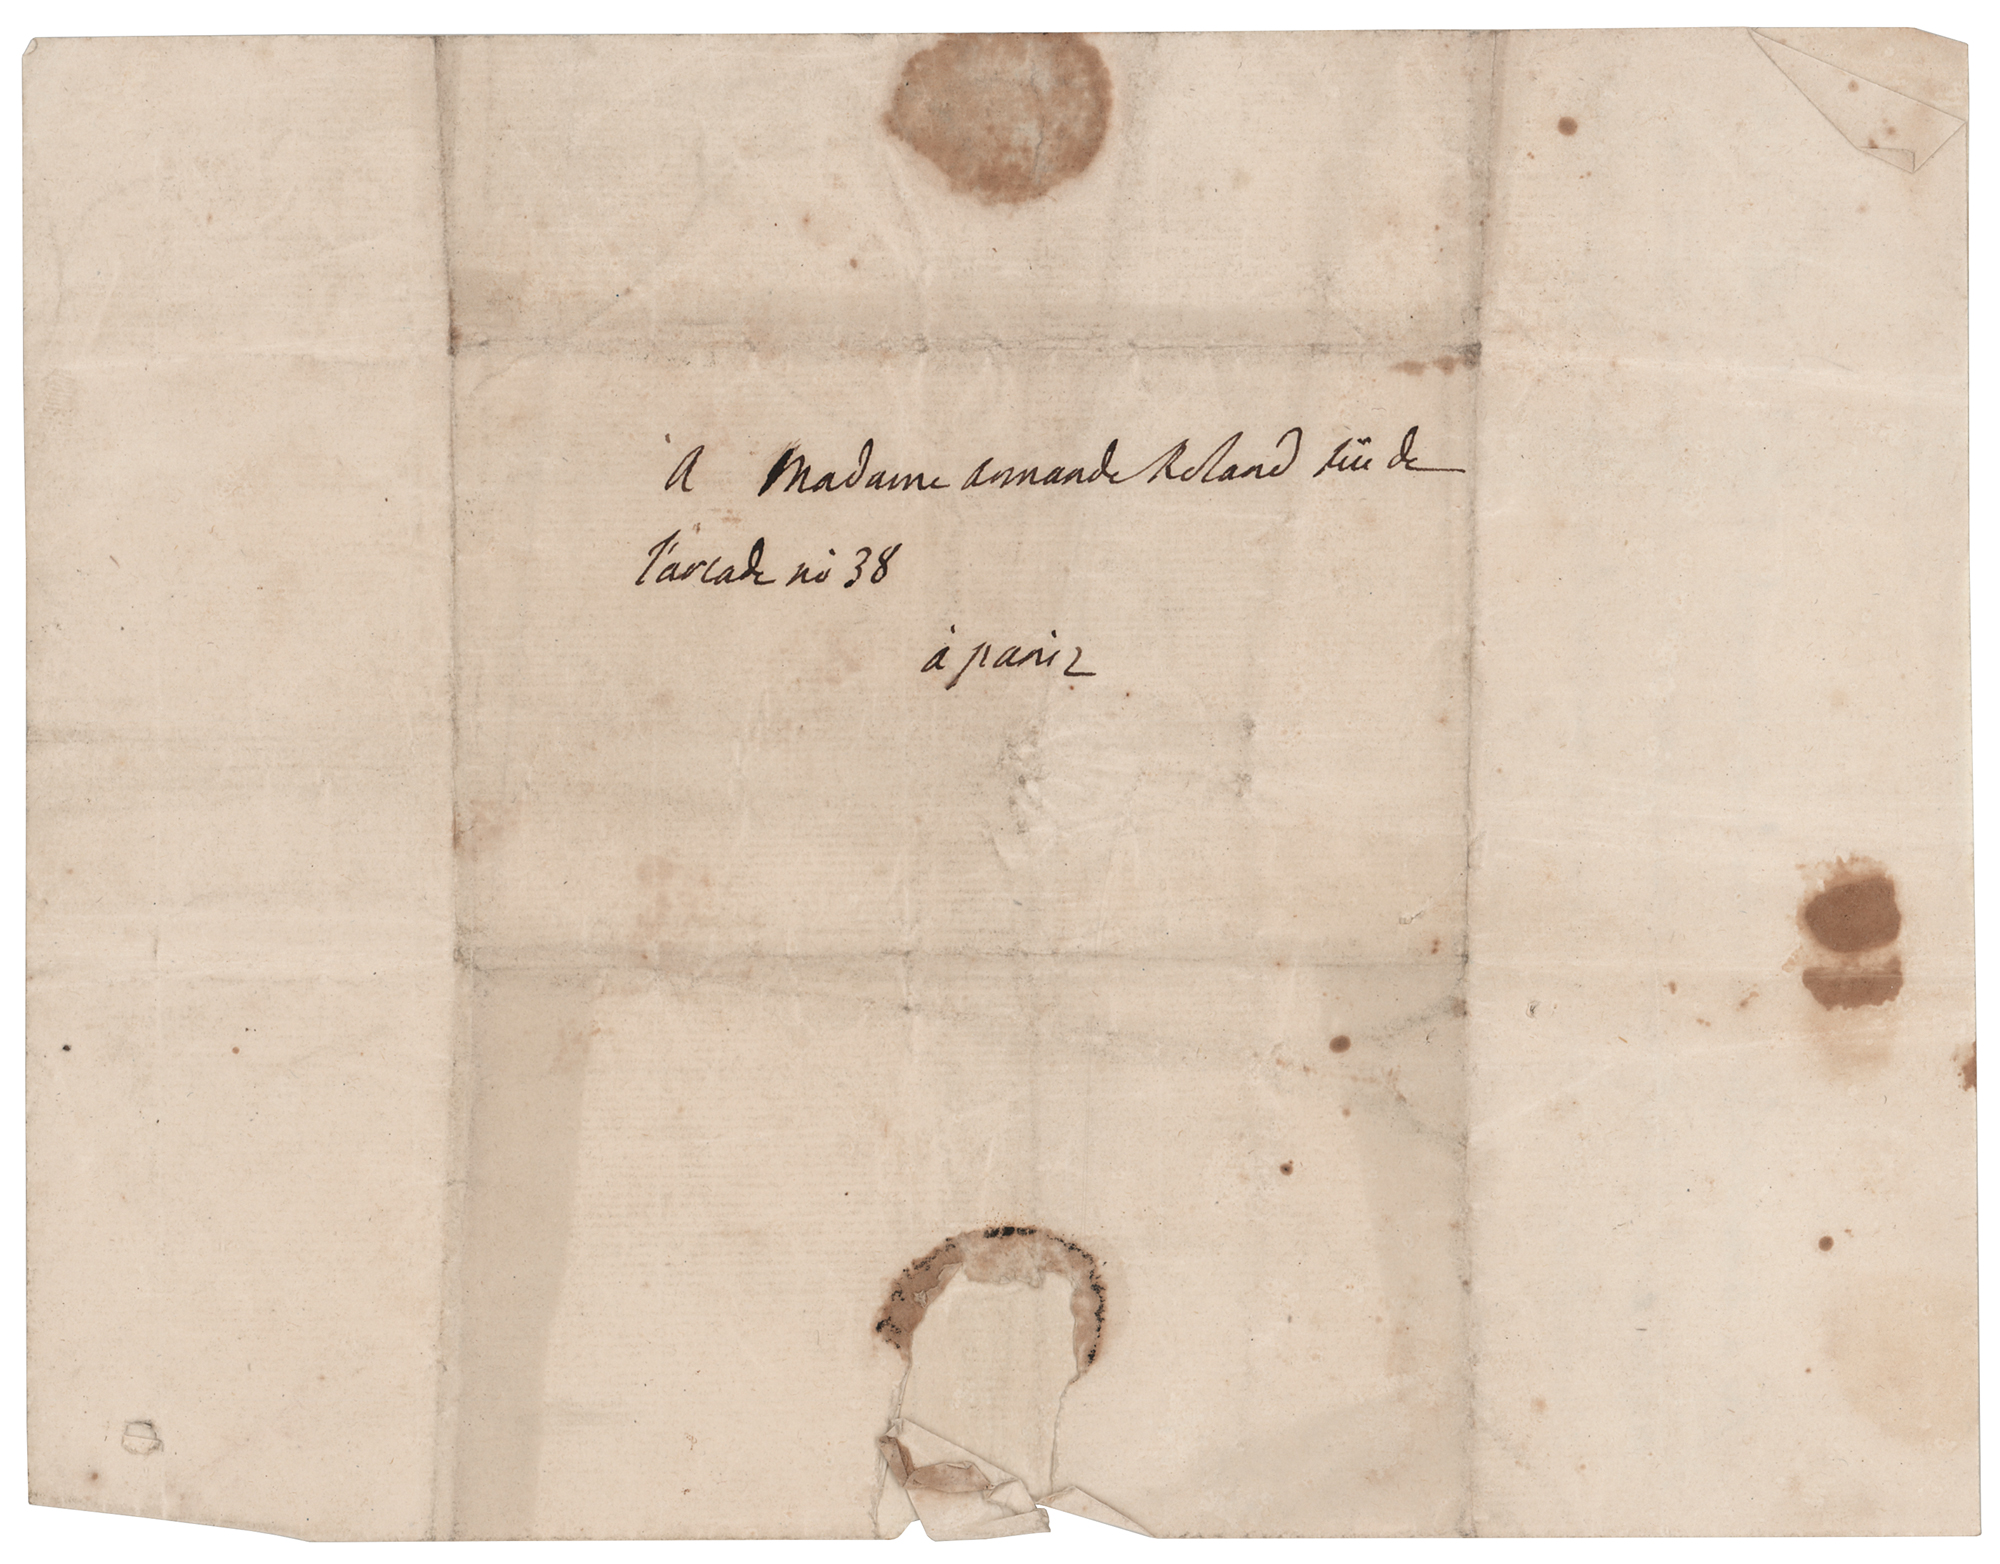 À Madame armande Roland rüe de
l'arcade no 38
à paris